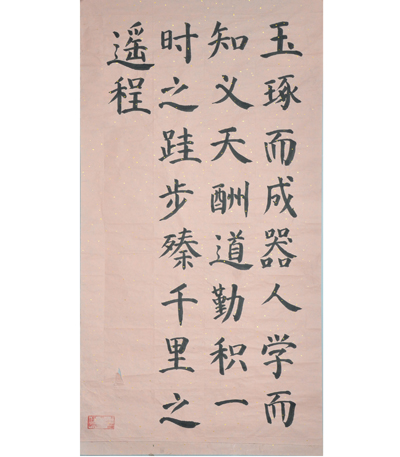 玉琢而成器人学而
知义天酬道勤积一
时之跬步臻千里之
遥程